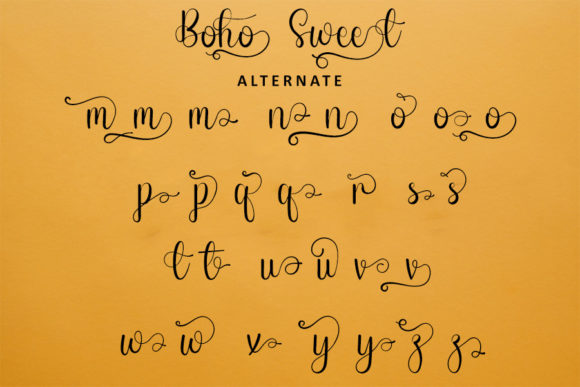 Boho Sweet
ALTERNATE
m m m n n o o o
p p q q r s s
t t u u v v
w w x y y z z